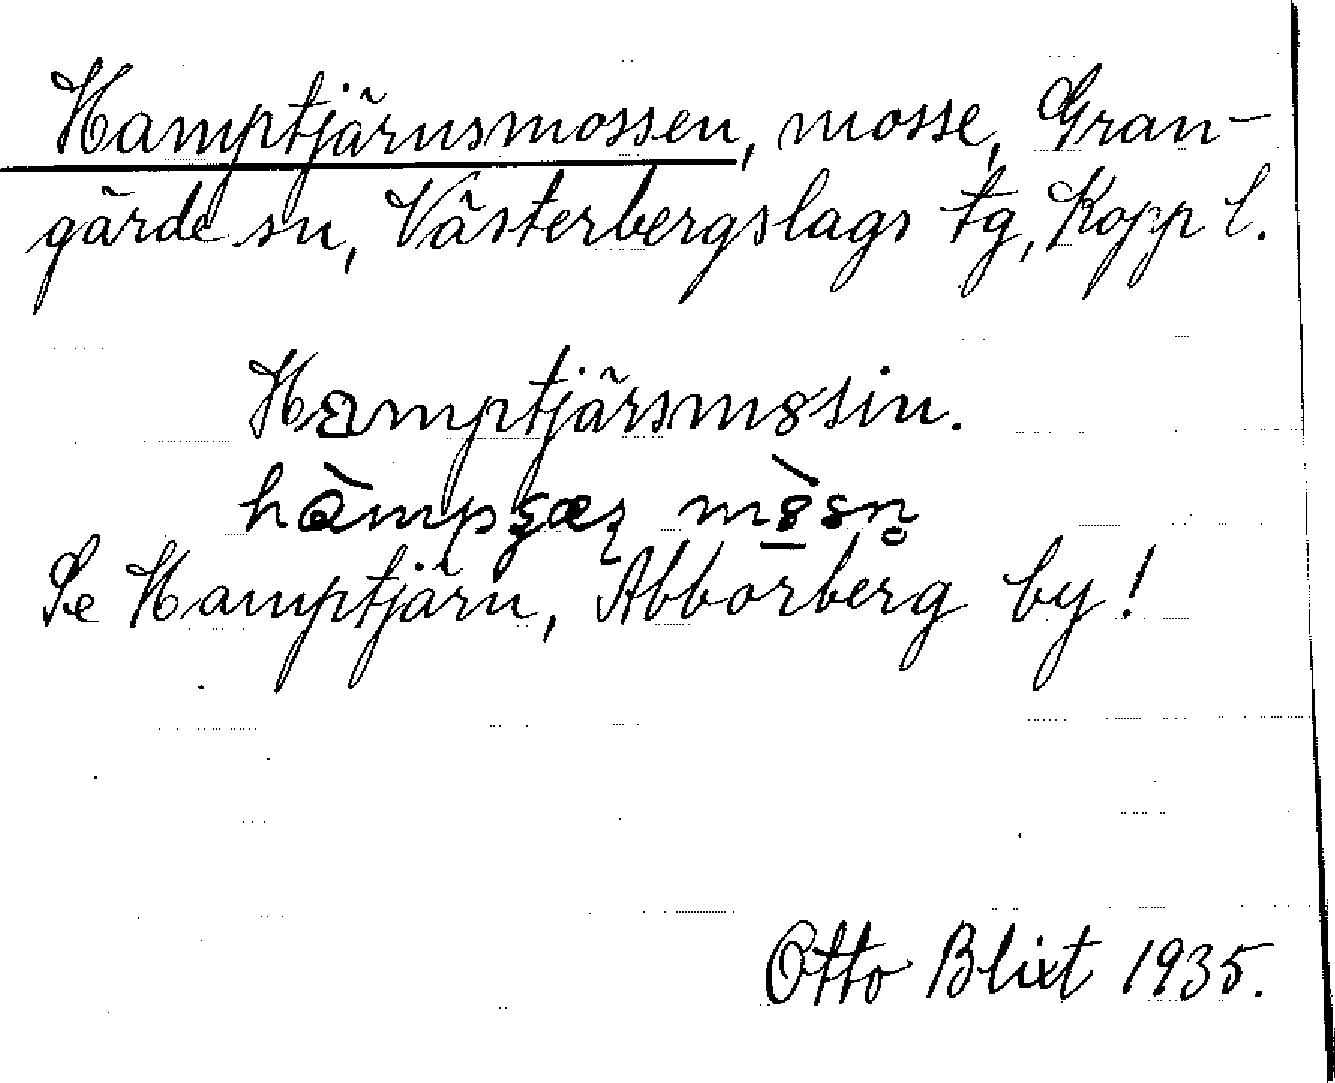 Hamptjärnsmossen, mosse, Gran-
gärde sn, Västerbergslags tg, Kopp l.
Hamptjärsm8sin.
Se Hamptjärn, Abborberg by!
Otto Blixt 1935.